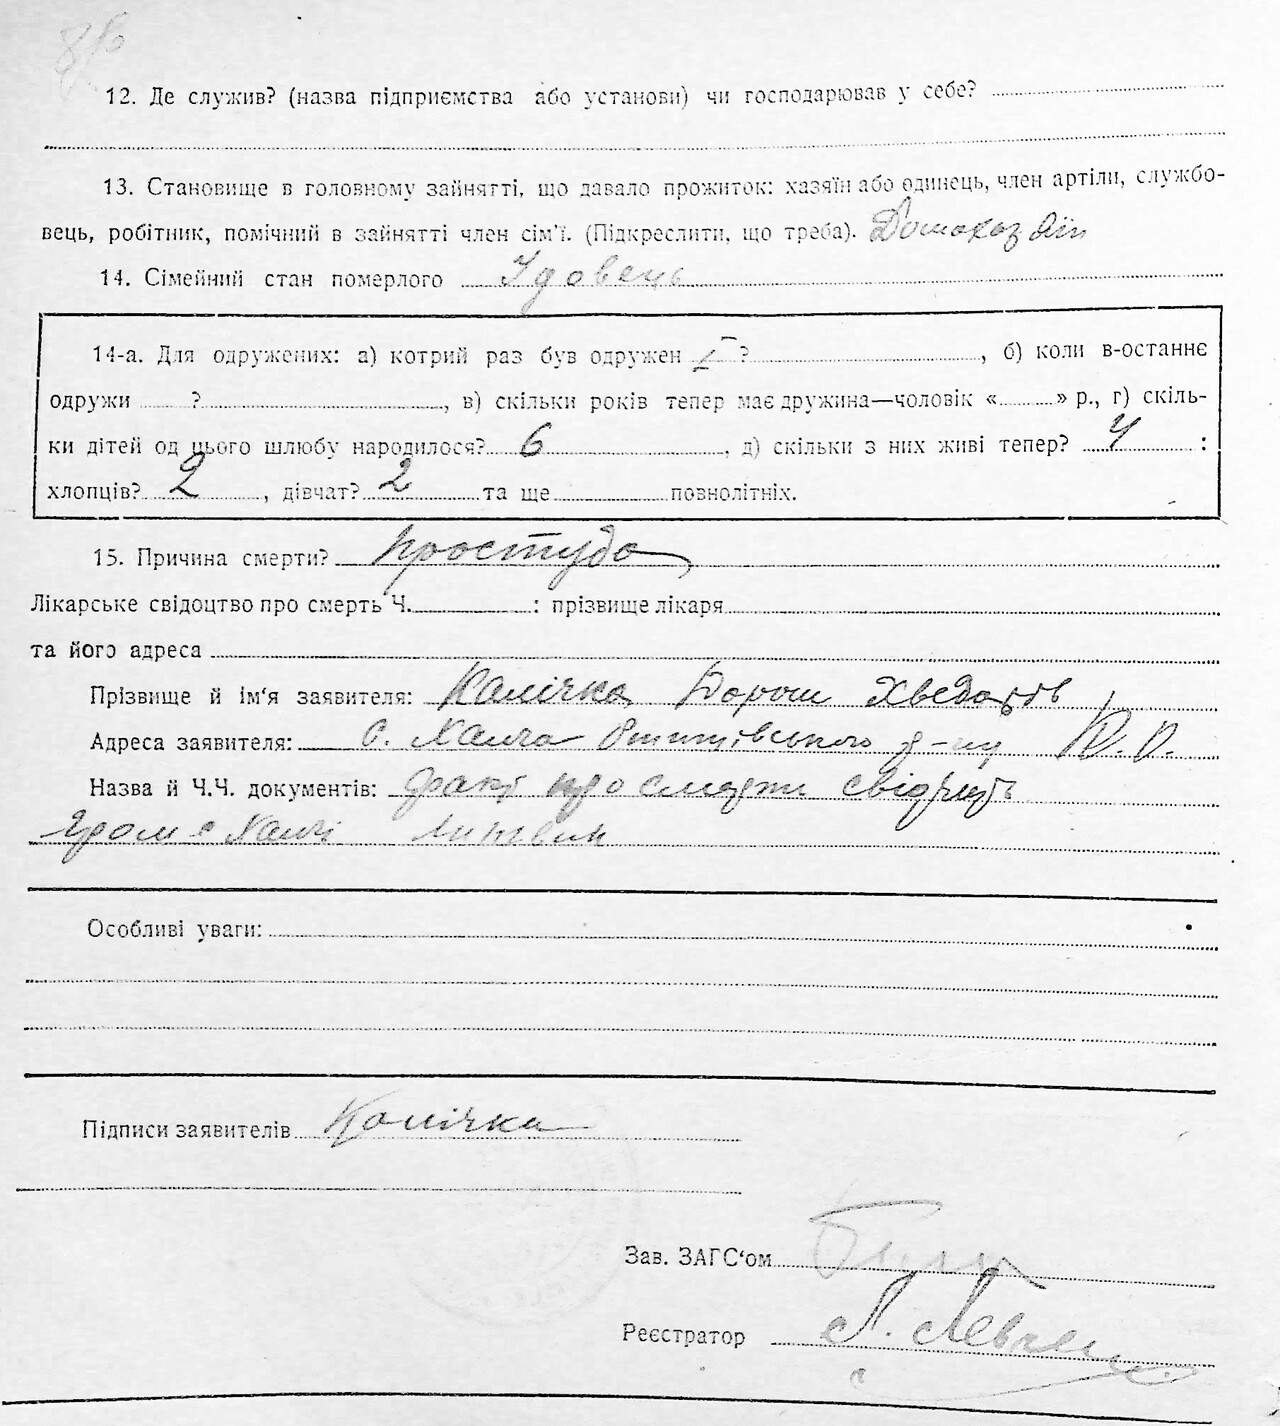 12. Де служив? (назва підприємства або установи) чи господарював у себе?
13. Становище в головному зайнятті, що давало прожиток: хазяїн або одинець, член артіли, службо-
вець, робітник, помічний в зайнятті член сім'ї. (Підкреслити, що треба).
14. Сімейний стан померлого Удовець
14-а. Для одружених: а) котрий раз був одружен I ? , б) коли в-останнє
одружи ? , в) скільки років тепер має дружина—чоловік « » р., г) скіль-
ки дітей од цього шлюбу народилося? 6 , д) скільки з них живі тепер? 4 :
хлопців? 2 , дівчат? 2 та ще повнолітніх.
15. Причина смерти? простуда
Лікарське свідоцтво про смерть Ч. : прізвище лікаря
та його адреса
Прізвище й ім'я заявителя: Калічка Дорош Хведорів
Адреса заявителя: с. р-ну
Назва й Ч.Ч. документів: факт про смерть свідчить
Литвин
Особливі уваги:
Підписи заявителів Калічка
Зав. ЗАГС'ом
Реєстратор